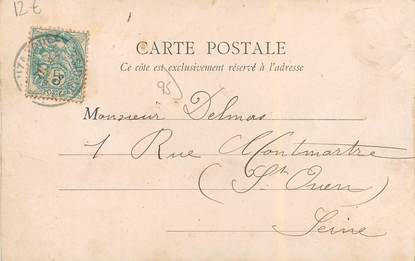 12 €
CARTE POSTALE
Ce côté est exclusivement réservé à l'adresse
5
95
Monsieur Delmas
1 Rue Montmartre
(St Ouen)
Seine